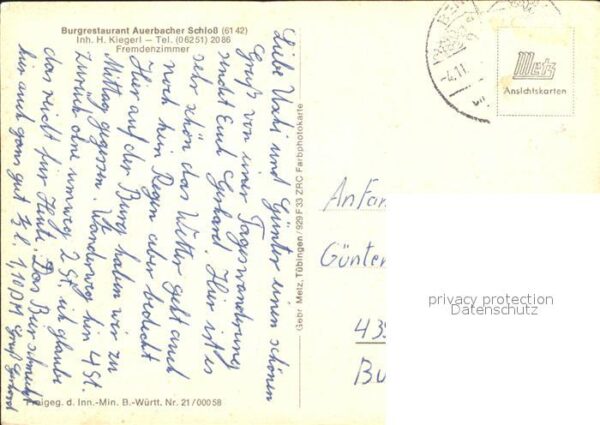 Burgrestaurant Auerbacher Schloß (61 42)
Inh. H. Kiegerl – Tel. (0 62 51) 20 86
Fremdenzimmer
Liebe Uschi und Günter einen schönen
Gruß von einer Tageswanderung
sendet Euch Gerhard. Hier ist es
sehr schön das Wetter geht auch
noch kein Regen aber bedeckt
Hier auf der Burg haben wir zu
Mittag gegessen. Wanderweg hin 4 St.
zurück ohne umweg 2 St ich glaube
das reicht für Heute. Das Bier schmeckt
hier auch ganz gut 1,10 DM Gruß Gerhard
Gebr. Metz, Tübingen / 929 F 33 ZRC Farbphotokarte
-4.11.
Metz
Ansichtskarten
An Fam
Günter
435
Freigeg. d. Inn.-Min. B.-Württ. Nr. 21/00058
privacy protection
Datenschutz